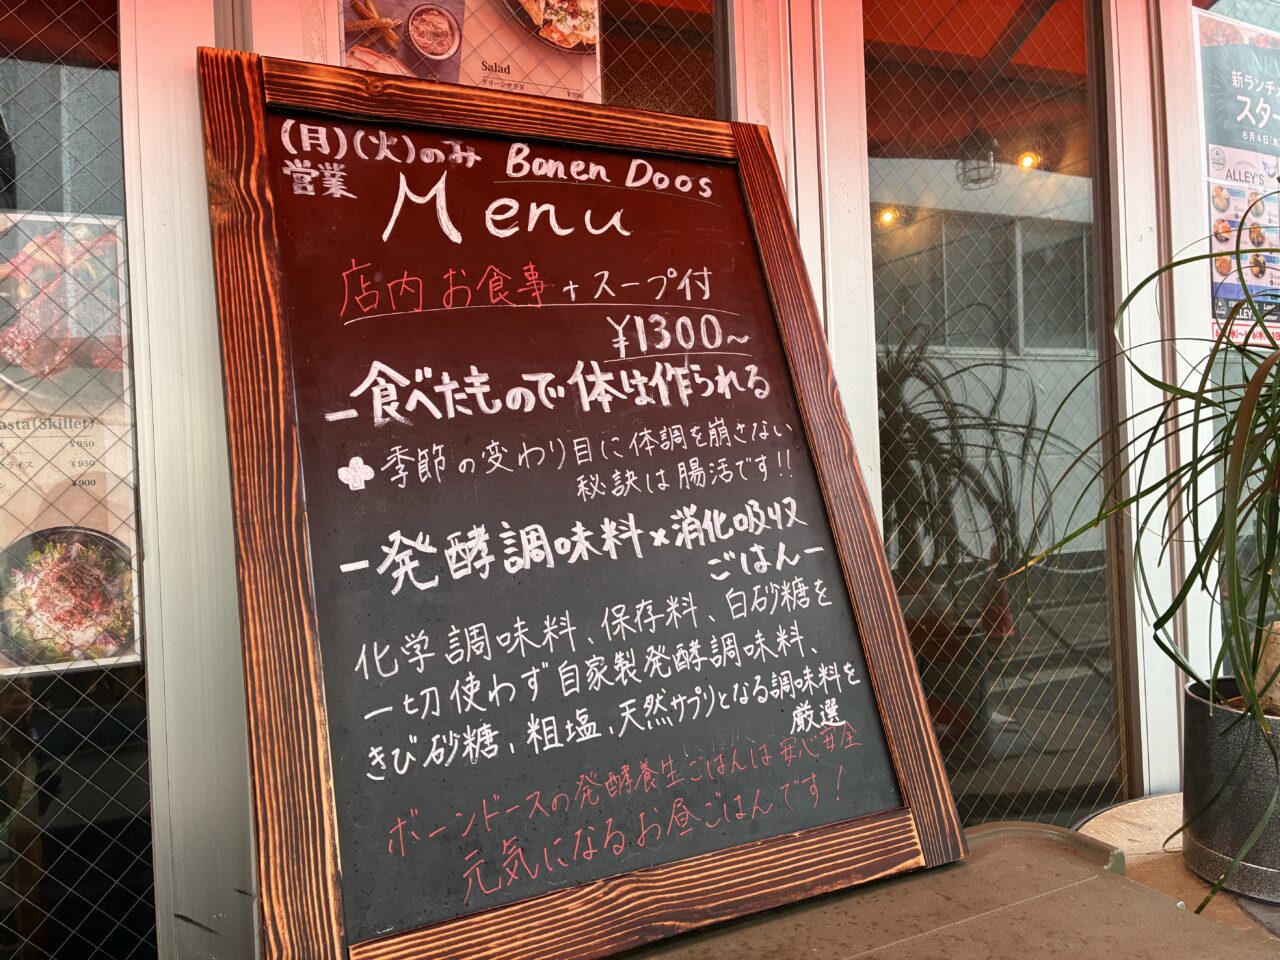 (月)(火)のみ
営業
Bonen Doos
Menu
店内お食事 + スープ付
¥1300~
ー食べたもので体は作られる
季節の変わり目に体調を崩さない
秘訣は腸活です!!
ー発酵調味料×消化吸収
ごはんー
化学調味料、保存料、白砂糖を
一切使わず自家製発酵調味料、
きび砂糖、粗塩、天然サプリとなる調味料を
厳選
ボーンドースの発酵養生ごはんは安心安全
元気になるお昼ごはんです!
Salad
グリーンサラダ
¥700
asta(Skillet)
¥950
クライス
¥950
¥900
新ランチ
スター
6月4日(水
ALLEY'S